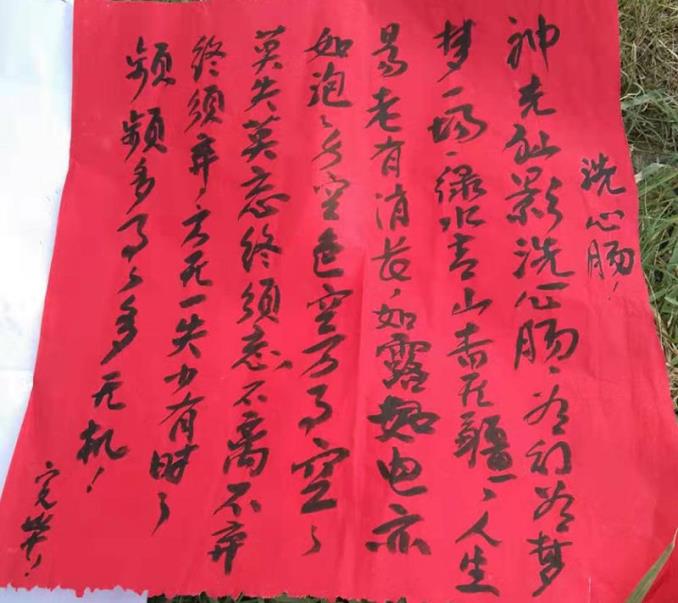 洗心肠！
神光仙影洗心肠、幻梦
梦一场、绿水青山寿无疆、人生
易老有消长、如露如电亦
如泡、空色空万事空、
莫失莫忘终须忘不离不弃
终须弃万无一失少有时、
频频多事多无机！
完毕！